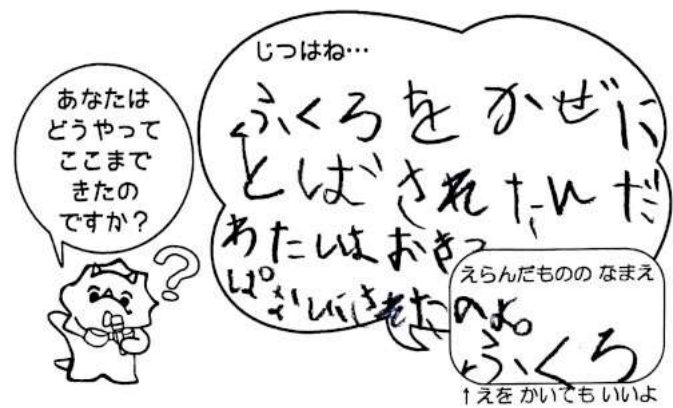 あなたは
どうやって
ここまで
きたの
ですか？
じつはね…
ふくろをかぜに
とばされたんだ
わたしはおきっ
ぱなしにされたのよ。
えらんだものの なまえ
ふくろ
↑えを かいても いいよ